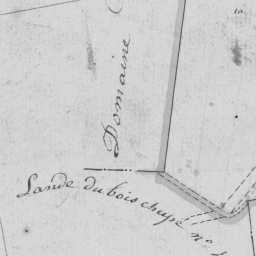 Domaine
Lande du bois chupé n.°